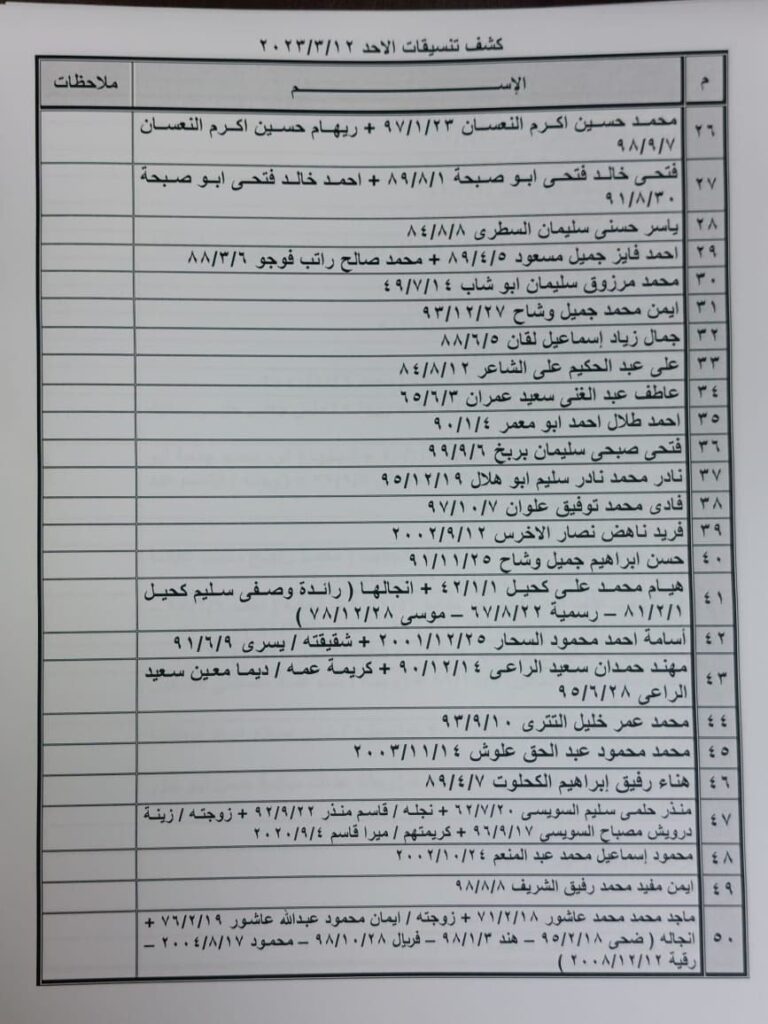 كشف تنسيقات الاحد ٢٠٢٣/٣/١٢
م الإســـــــم ملاحظات
٢٦ محمد حسين اكرم النعسان ٩٧/١/٢٣ + ريهام حسين اكرم النعسان
٩٨/٩/٧
٢٧ فتحى خالد فتحى ابو صبحة ٨٩/٨/١ + احمد خالد فتحى ابو صبحة
٩١/٨/٣٠
٢٨ ياسر حسنى سليمان السطرى ٨٤/٨/٨
٢٩ احمد فايز جميل مسعود ٨٩/٤/٥ + محمد صالح راتب فوجو ٨٨/٣/٦
٣٠ محمد مرزوق سليمان ابو شاب ٤٩/٧/١٤
٣١ ايمن محمد جميل وشاح ٩٣/١٢/٢٧
٣٢ جمال زياد إسماعيل لقان ٨٨/٦/٥
٣٣ على عبد الحكيم على الشاعر ٨٤/٨/١٢
٣٤ عاطف عبد الغنى سعيد عمران ٦٥/٦/٣
٣٥ احمد طلال احمد ابو معمر ٩٠/١/٤
٣٦ فتحى صبحى سليمان بربخ ٩٩/٩/٦
٣٧ نادر محمد نادر سليم ابو هلال ٩٥/١٢/١٩
٣٨ فادى محمد توفيق علوان ٩٧/١٠/٧
٣٩ فريد ناهض نصار الاخرس ٢٠٠٢/٩/١٢
٤٠ حسن ابراهيم جميل وشاح ٩١/١١/٢٥
٤١ هيام محمد على كحيل ٤٢/١/١ + انجالها ( رائدة وصفى سليم كحيل
٨١/٢/١ – رسمية ٦٧/٨/٢٢ – موسى ٧٨/١٢/٢٨ )
٤٢ أسامة احمد محمود السحار ٢٠٠١/١٢/٢٥ + شقيقته / يسرى ٩١/٦/٩
٤٣ مهند حمدان سعيد الراعى ٩٠/١٢/١٤ + كريمة عمه / ديما معين سعيد
الراعى ٩٥/٦/٢٨
٤٤ محمد عمر خليل التترى ٩٣/٩/١٠
٤٥ محمد محمود عبد الحق علوش ٢٠٠٣/١١/١٤
٤٦ هناء رفيق إبراهيم الكحلوت ٨٩/٤/٧
٤٧ منذر حلمى سليم السويسى ٦٢/٧/٢٠ + نجله / قاسم منذر ٩٢/٩/٢٢ + زوجته / زينة
درويش مصباح السويسى ٩٦/٩/١٧ + كريمتهم / ميرا قاسم ٢٠٢٠/٩/٤
٤٨ محمود إسماعيل محمد عبد المنعم ٢٠٠٢/١٠/٢٤
٤٩ ايمن مفيد محمد رفيق الشريف ٩٨/٨/٨
٥٠ ماجد محمد محمد عاشور ٧١/٢/١٨ + زوجته / ايمان محمود عبدالله عاشور ٧٦/٢/١٩ +
انجاله ( ضحى ٩٥/٢/١٨ – هند ٩٨/١/٣ – فريال ٩٨/١٠/٢٨ – محمود ٢٠٠٤/٨/١٧ –
رقية ٢٠٠٨/١٢/١٢ )